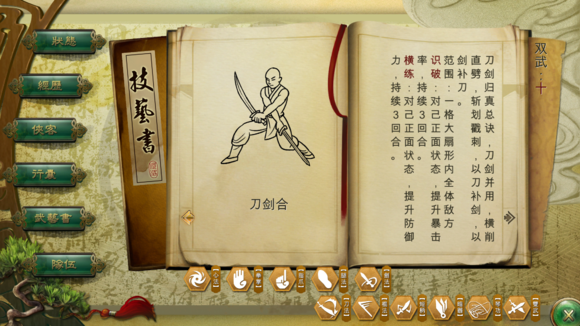 狀態
經歷
俠客
行囊
武藝書
隊伍
技藝書
刀剑合
双武：十
刀剑归真总诀，刀剑并用，横削
直劈，斩划戳刺，以刀补剑，以
剑补刀。
范围：一格大扇形内全体敌方
识破：对己正面状态，提升暴击
率，持续3回合。
横练：对己正面状态，提升防御
力，持续3回合。